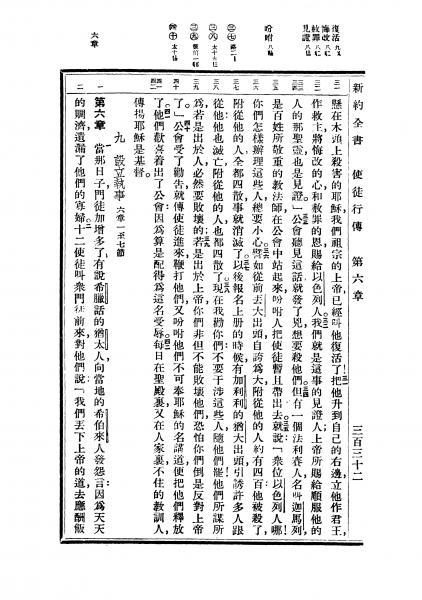 新約全書　使徒行傳　第六章　三百三十二
懸在木頭上殺害的耶穌我們祖宗的上帝已經叫他復活了把他升到自己的右邊立他作君王、
作救主將悔改的心和赦罪的恩賜給以色列人我們就是這事的見證人上帝所賜給順服他的
人的那聖靈也是見證」公會聽見這話就發了兇想要殺他們但有一個法利賽人名叫迦馬列
是百姓所敬重的教法師在公會中站起來吩咐人把使徒暫且帶出去就說「衆位以色列人哪!
你們怎樣辦理這些人總要小心譬如從前丟大出頭自誇爲大附從他的人約有四百他被殺了、
附從他的人全都四散事就消滅了以後報名上册的時候有加利利的猶大出頭引誘許多人跟
從他他也滅亡附從他的人也都四散了現在我勸你們不要干涉這些人隨他們罷他們所謀所
爲若是出於人必然要敗壞的若是出於上帝你們非但不能敗壞他們恐怕你們倒是反對上帝
了」公會受了勸告就傳使徒進來鞭打他們又吩咐他們不可奉耶穌的名講道便把他們釋放
了他們歡喜着出了公會因爲算是配得爲這名受辱每日在聖殿裏又在人家裏不住的教訓人
傳揚耶穌是基督。
九　設立執事 六章一至七節
第六章 當那日子門徒加增多了有說希臘話的猶太人向當地的希伯來人發怨言因爲天天
的賙濟遺漏了他們的寡婦十二使徒叫衆門徒前來對他們說「我們丟下上帝的道去應酬飯
復活
悔改
赦罪
見證
吩咐
六章